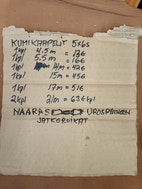 KUMIKAAPELIT 5x6s
1kpl 4.5m = 13€
1kpl 5.5m = 16€
1kpl 14m = 42€
1kpl 15m = 45€
1kpl 17m = 51€
2kpl 21m = 63€ kpl
NAARAS UROSPÄINEN
JATKOROIKAT